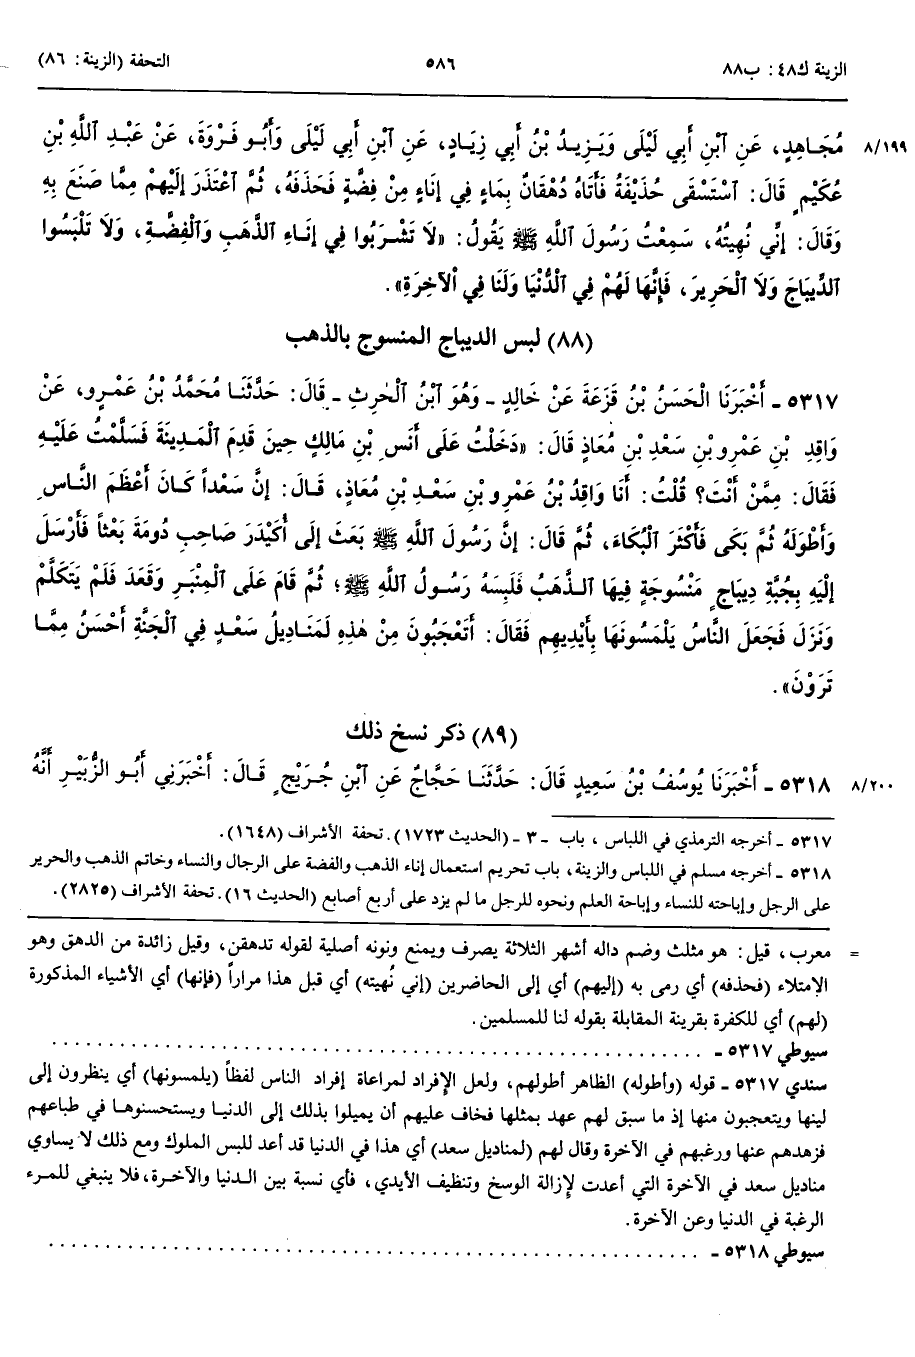 الزينة ك٤٨: ب٨٨ ٥٨٦ التحفة (الزينة: ٨٦)
٨/١٩٩ مُجَاهِدٍ، عَنِ ٱبْنِ أَبِي لَيْلَى وَيَزِيدُ بْنُ أَبِي زِيَادٍ، عَنِ ٱبْنِ أَبِي لَيْلَى وَأَبُو فَرْوَةَ، عَنْ عَبْدِ ٱللَّهِ بْنِ
عُكَيْمٍ قَالَ: ٱسْتَسْقَى حُذَيْفَةُ فَأَتَاهُ دُهْقَانٌ بِمَاءٍ فِي إِنَاءٍ مِنْ فِضَّةٍ فَحَذَفَهُ، ثُمَّ ٱعْتَذَرَ إِلَيْهِمْ مِمَّا صَنَعَ بِهِ
وَقَالَ: إِنِّي نُهِيتُهُ، سَمِعْتُ رَسُولَ ٱللَّهِ ﷺ يَقُولُ: «لَا تَشْرَبُوا فِي إِنَاءِ ٱلذَّهَبِ وَٱلْفِضَّةِ، وَلَا تَلْبَسُوا
ٱلدِّيبَاجَ وَلَا ٱلْحَرِيرَ، فَإِنَّهَا لَهُمْ فِي ٱلدُّنْيَا وَلَنَا فِي ٱلْآخِرَةِ».
(٨٨) لبس الديباج المنسوج بالذهب
٥٣١٧ ـ أَخْبَرَنَا الْحَسَنُ بْنُ قَزَعَةَ عَنْ خَالِدٍ ـ وَهُوَ ٱبْنُ ٱلْحَٰرِثِ ـ قَالَ: حَدَّثَنَا مُحَمَّدُ بْنُ عَمْرٍو، عَنْ
وَاقِدِ بْنِ عَمْرِو بْنِ سَعْدِ بْنِ مُعَاذٍ قَالَ: «دَخَلْتُ عَلَى أَنَسِ بْنِ مَالِكٍ حِينَ قَدِمَ ٱلْمَدِينَةَ فَسَلَّمْتُ عَلَيْهِ
فَقَالَ: مِمَّنْ أَنْتَ؟ قُلْتُ: أَنَا وَاقِدُ بْنُ عَمْرِو بْنِ سَعْدِ بْنِ مُعَاذٍ، قَالَ: إِنَّ سَعْداً كَانَ أَعْظَمَ النَّاسِ
وَأَطْوَلَهُ ثُمَّ بَكَى فَأَكْثَرَ ٱلْبُكَاءَ، ثُمَّ قَالَ: إِنَّ رَسُولَ ٱللَّهِ ﷺ بَعَثَ إِلَى أُكَيْدَرَ صَاحِبِ دُومَةَ بَعْثاً فَأَرْسَلَ
إِلَيْهِ بِجُبَّةِ دِيبَاجٍ مَنْسُوجَةٍ فِيهَا ٱلذَّهَبُ فَلَبِسَهُ رَسُولُ ٱللَّهِ ﷺ؛ ثُمَّ قَامَ عَلَى ٱلْمِنْبَرِ وَقَعَدَ فَلَمْ يَتَكَلَّمْ
وَنَزَلَ فَجَعَلَ النَّاسُ يَلْمِسُونَهَا بِأَيْدِيهِمْ فَقَالَ: أَتَعْجَبُونَ مِنْ هٰذِهِ لَمَنَادِيلُ سَعْدٍ فِي ٱلْجَنَّةِ أَحْسَنُ مِمَّا
تَرَوْنَ».
(٨٩) ذكر نسخ ذلك
٨/٢٠٠ ٥٣١٨ ـ أَخْبَرَنَا يُوسُفُ بْنُ سَعِيدٍ قَالَ: حَدَّثَنَا حَجَّاجٌ عَنِ ٱبْنِ جُرَيْجٍ قَالَ: أَخْبَرَنِي أَبُو الزُّبَيْرِ أَنَّهُ
٥٣١٧ ـ أخرجه الترمذي في اللباس، باب ـ ٣ ـ (الحديث ١٧٢٣). تحفة الأشراف (١٦٤٨).
٥٣١٨ ـ أخرجه مسلم في اللباس والزينة، باب تحريم استعمال إناء الذهب والفضة على الرجال والنساء وخاتم الذهب والحرير
على الرجل وإباحته للنساء وإباحة العلم ونحوه للرجل ما لم يزد على أربع أصابع (الحديث ١٦). تحفة الأشراف (٢٨٢٥).
= معرب، قيل: هو مثلث وضم داله أشهر الثلاثة يصرف ويمنع ونونه أصلية لقوله تدهقن، وقيل زائدة من الدهق وهو
الإمتلاء (فحذفه) أي رمى به (إليهم) أي إلى الحاضرين (إني نُهيته) أي قبل هذا مراراً (فإنها) أي الأشياء المذكورة
(لهم) أي للكفرة بقرينة المقابلة بقوله لنا للمسلمين.
سيوطي ٥٣١٧ ـ . . . . . . . . . . . . . . . . . . . . . . . . . . . . . .
سندي ٥٣١٧ ـ قوله (وأطوله) الظاهر أطولهم، ولعل الإفراد لمراعاة إفراد الناس لفظاً (يلمسونها) أي ينظرون إلى
لينها ويتعجبون منها إذ ما سبق لهم عهد بمثلها فخاف عليهم أن يميلوا بذلك إلى الدنيا ويستحسنوها في طباعهم
فزهدهم عنها ورغبهم في الآخرة وقال لهم (لمناديل سعد) أي هذا في الدنيا قد أعد للبس الملوك ومع ذلك لا يساوي
مناديل سعد في الآخرة التي أعدت لإزالة الوسخ وتنظيف الأيدي، فأي نسبة بين الدنيا والآخرة، فلا ينبغي للمرء
الرغبة في الدنيا وعن الآخرة.
سيوطي ٥٣١٨ ـ . . . . . . . . . . . . . . . . . . . . . . . . . . . . . .